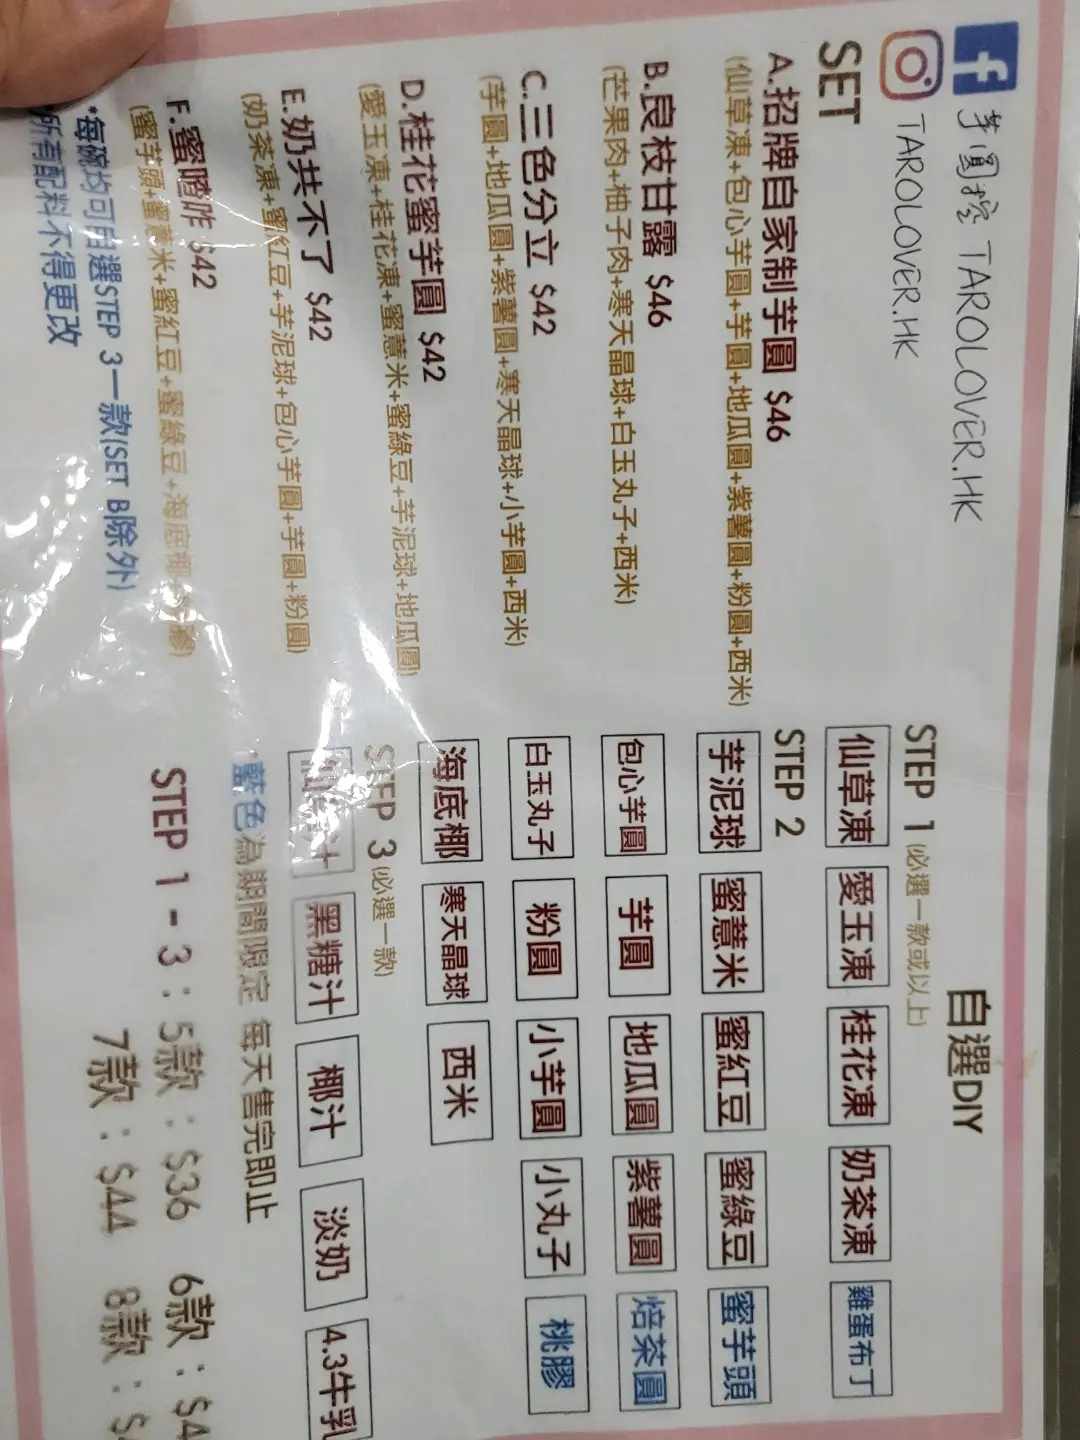 芋圓控 TAROLOVER.HK
TAROLOVER.HK
SET
A.招牌自家制芋圓 $46
(仙草凍+包心芋圓+芋圓+地瓜圓+紫薯圓+粉圓+西米)
B.良枝甘露 $46
(芒果肉+柚子肉+寒天晶球+白玉丸子+西米)
C.三色分立 $42
(芋圓+地瓜圓+紫薯圓+寒天晶球+小芋圓+西米)
D.桂花蜜芋圓 $42
(愛玉凍+桂花凍+蜜薏米+蜜綠豆+芋泥球+地瓜圓)
E.奶共不了 $42
(奶茶凍+蜜紅豆+芋泥球+包心芋圓+芋圓+粉圓)
F.蜜喳咋 $42
(蜜芋頭+蜜薏米+蜜紅豆+蜜綠豆+海底椰+
*每碗均可自選STEP 3一款(SET B除外)
所有配料不得更改
自選DIY
STEP 1(必選一款或以上)
仙草凍 愛玉凍 桂花凍 奶茶凍 雞蛋布丁
STEP 2
芋泥球 蜜薏米 蜜紅豆 蜜綠豆 蜜芋頭
包心芋圓 芋圓 地瓜圓 紫薯圓 焙茶圓
白玉丸子 粉圓 小芋圓 小丸子 桃膠
海底椰 寒天晶球 西米
STEP 3(必選一款)
黑糖汁 椰汁 淡奶 4.3牛乳
*藍色為期間限定 每天售完即止
STEP 1 - 3 : 5款 : $36 6款 : $4
7款 : $44 8款 : $